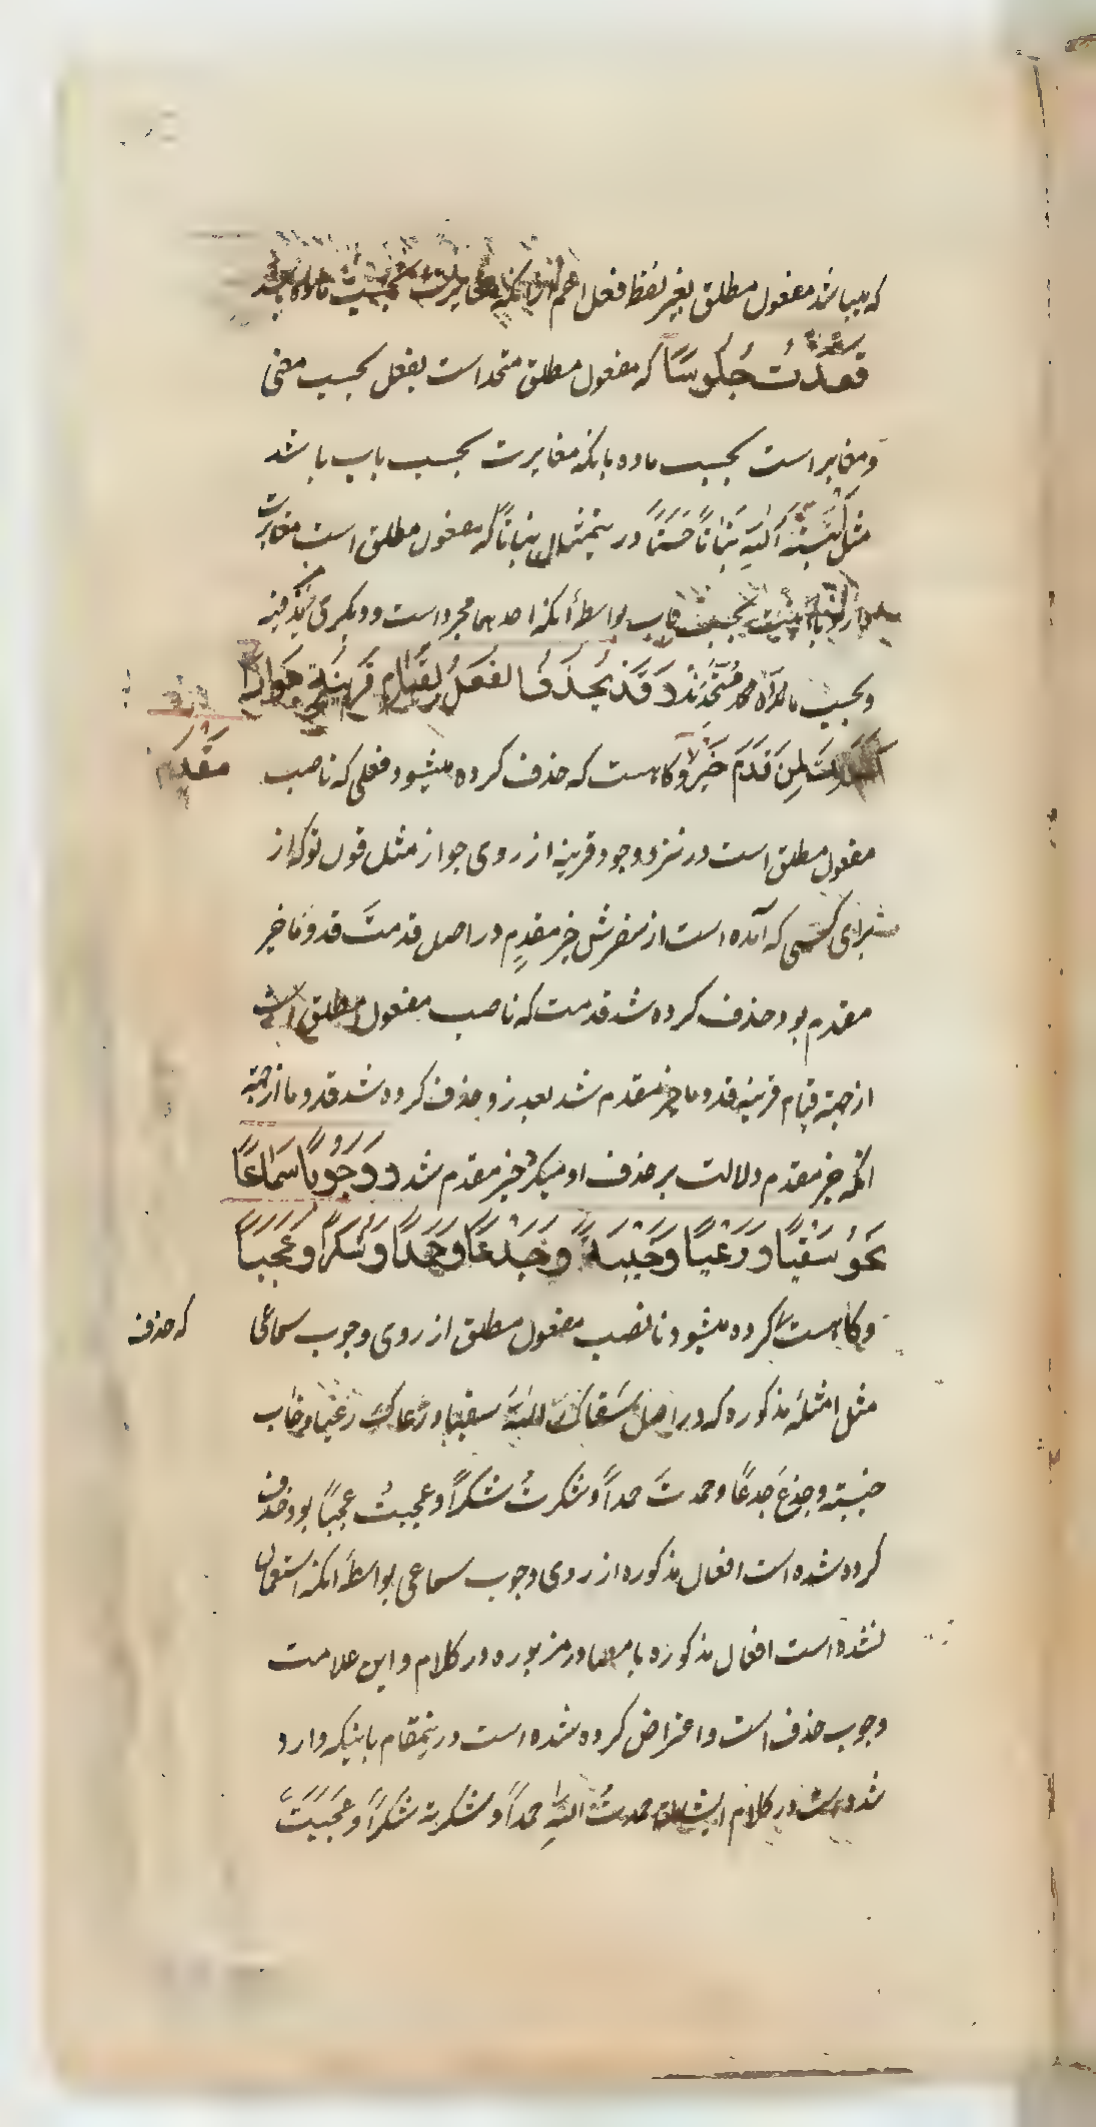 که میباشد مفعول مطلق بغیر لفظ فعل اعم از آنکه مغایرت بحسب ماده باشد
قَعَدْتُ جُلُوسًا که مفعول مطلق متحد است بفعل بحسب معنی
و مغایر است بحسب ماده یا انکه مغایرت بحسب باب باشد
مثل اَنْبَتَهُ اَللّٰهُ نَبَاتًا حَسَنًا درینمثال نباتاً که مفعول مطلق است مغایرت
بحسب باب بواسطهٔ انکه احدهما مجرد است و دیگری مزید فیه
و بحسب ماده متحدند وَقَدْ یُحْذَفُ الْفِعْلُ لِقِیَامِ قَرِینَةٍ جَوَازًا
کَقَوْلِکَ لِمَنْ قَدِمَ خَیْرَ و کاهست که حذف کرده میشود فعلی که ناصب
مَقْدَمٍ
مفعول مطلق است در نزد وجود قرینه از روی جواز مثل قول تو که از
برای کسی که آمده است از سفرش خیر مقدمٍ در اصل قدمتَ قدوما خیر
مقدم بود حذف کرده شد قدمت که ناصب مفعول مطلق است
از جهة قیام قرینه قدوما خیر مقدم شد بعد از و حذف کرده شد قدوما از جهة
انکه خیر مقدم دلالت بر حذف او میکرد خیر مقدم شد وَ وُجُوبًا سَمَاعًا
نَحْوُ سَقْیًا وَ رَعْیًا وَ خَیْبَةً وَ جَدْعًا وَ حَمْدًا وَ شُکْرًا وَ عَجَبًا
و کاهست کرده میشود ناصب مفعول مطلق از روی وجوب سماعی
که حذف
مثل امثلهٔ مذکوره که در اصل سَقاکَ اللّٰهُ سقیا و رعاک رعیا و خاب
خیبته و جدع جدعًا و حمدتَ حمداً و شکرتُ شکراً و عجبتُ عجباً بود حذف
کرده شده است افعال مذکوره از روی وجوب سماعی بواسطهٔ انکه استعمال
نشده است افعال مذکوره با مصادر مزبوره در کلام و این علامت
وجوب حذف است و اعتراض کرده شده است درینمقام باینکه وارد
شده است در کلام ایشان حمدتُ اللّٰهِ حمداً و شکرته شکراً و عَجَبَتَ